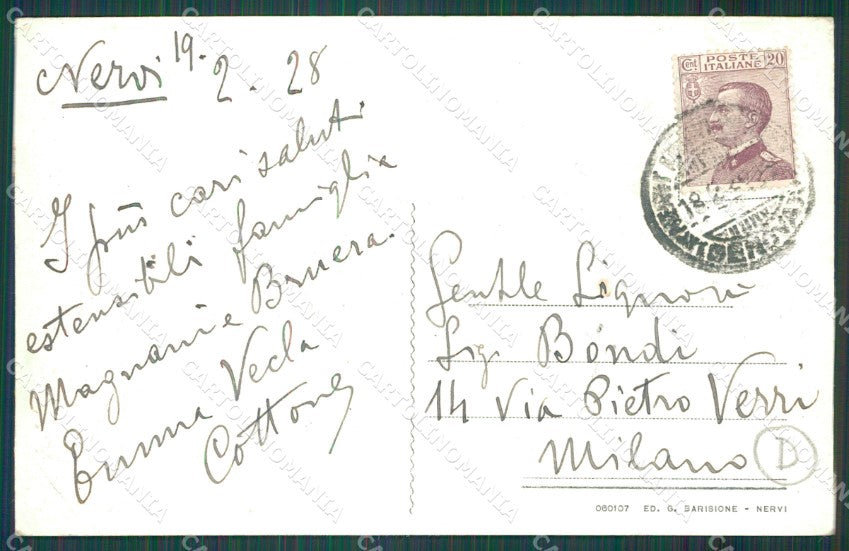 Nervi 19. 2. 28
I più cari saluti
estensibili famiglia
Magnani e Bruera.
Emma Vecla
Cottone
Cent POSTE ITALIANE 20
Gentle Signori
Sig. Bondi
14 Via Pietro Verri
Milano
D
060107 ED. G. BARISIONE - NERVI
CARTOLINOMANIA